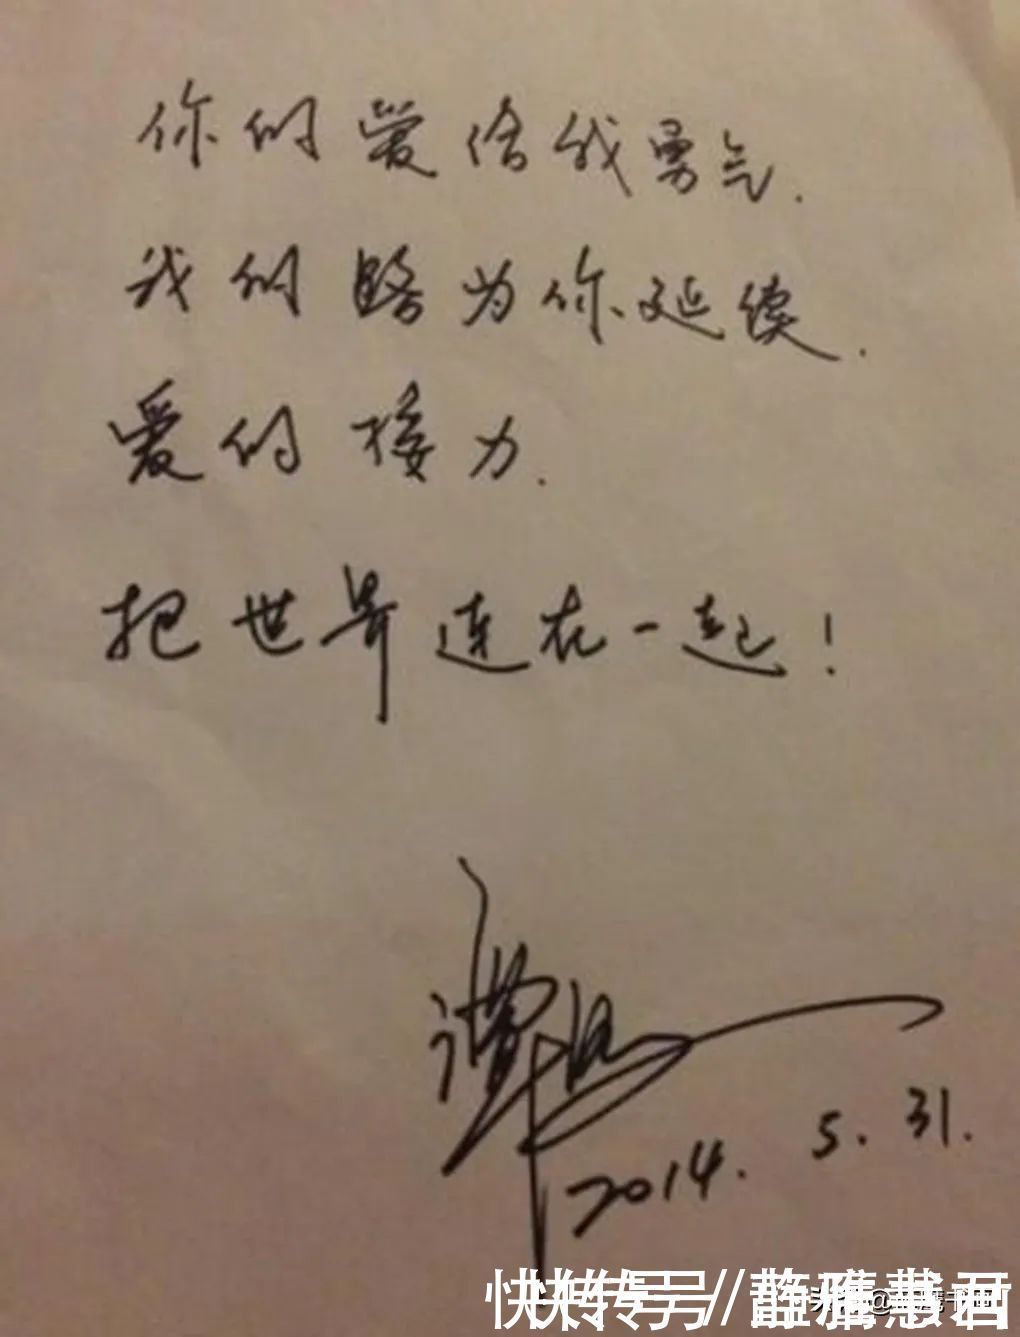 你们的爱给我勇气.
我们的路为你延续.
爱的接力.
把世界连在一起!
2014. 5. 31.
快转号//